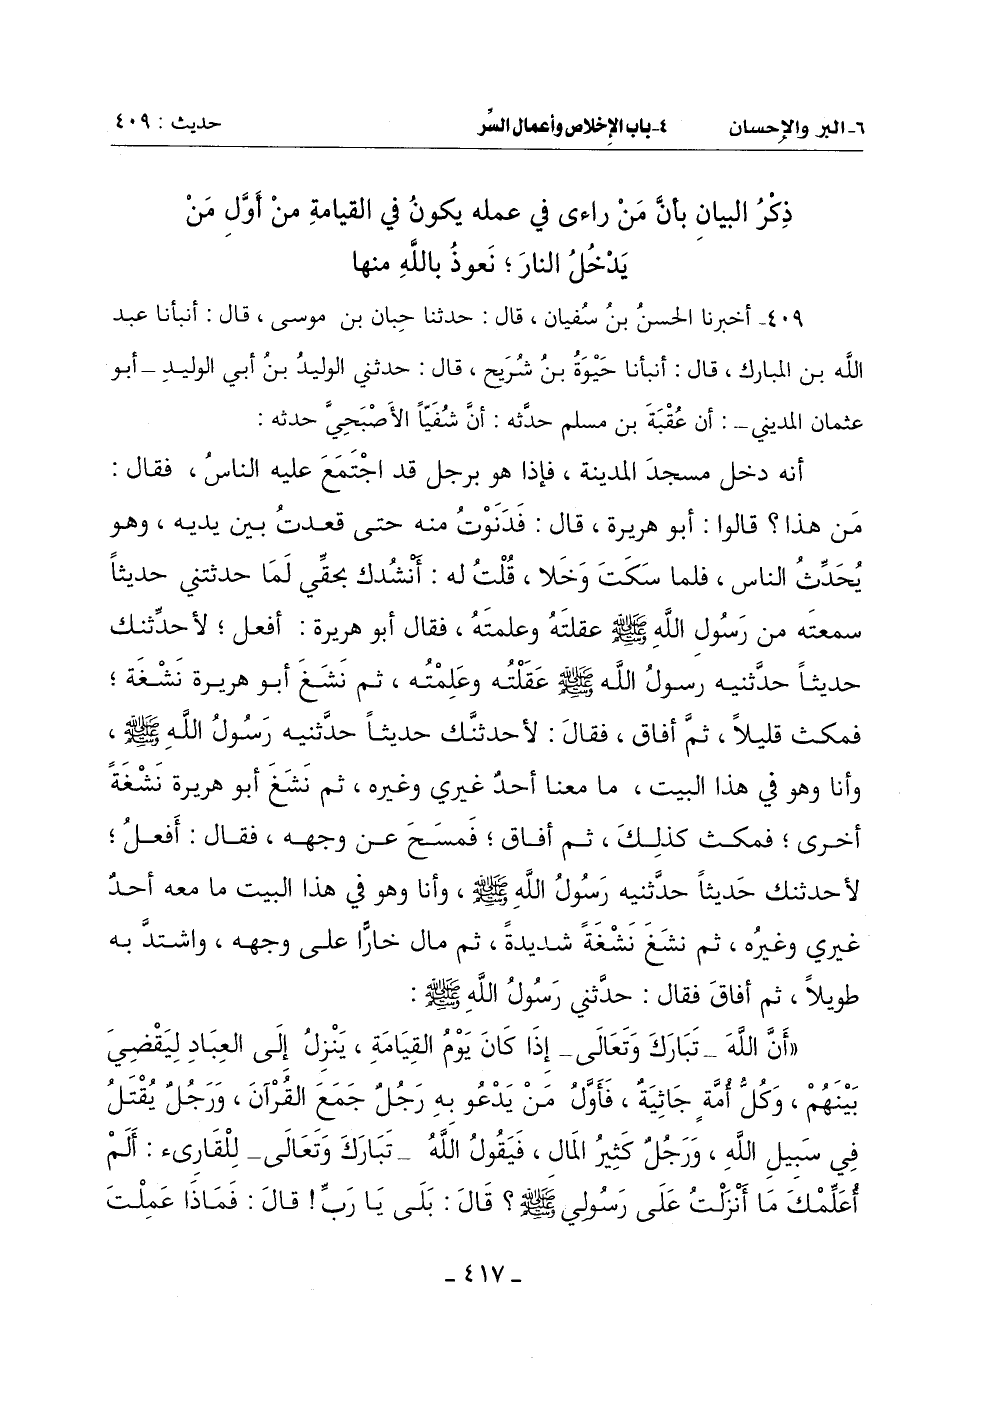 ٦ـ البر والإحسان ٤ـ باب الإخلاص وأعمال السِّر حديث : ٤٠٩
ذِكْرُ البيانِ بأنَّ مَنْ راءى في عمله يكونُ في القيامةِ منْ أوَّلِ مَنْ
يَدْخُلُ النارَ ؛ نَعوذُ باللَّهِ منها
٤٠٩ـ أخبرنا الحسنُ بنُ سُفيان ، قال : حدثنا حِبان بن موسى ، قال : أنبأنا عبد
اللَّه بن المبارك ، قال : أنبأنا حَيْوَةُ بنُ شُرَيح ، قال : حدثني الوليدُ بنُ أبي الوليد ـ أبو
عثمان المديني ـ : أن عُقْبَةَ بن مسلم حدَّثه : أنَّ شُفَيّاً الأَصْبَحِيَّ حدثه :
أنه دخل مسجدَ المدينة ، فإذا هو برجل قد اجْتَمَعَ عليه الناسُ ، فقال :
مَن هذا ؟ قالوا : أبو هريرة ، قال : فَدَنَوْتُ منه حتى قعدتُ بين يديه ، وهو
يُحَدِّثُ الناس ، فلما سَكَتَ وَخَلا ، قُلْتُ له : أَنْشُدك بحقِّي لَمَا حدثتني حديثاً
سمعتَه من رَسُولِ اللَّهِ ﷺ عقلتَهُ وعلمتَهُ ، فقال أبو هريرة : أفعل ؛ لأحدِّثنك
حديثاً حدَّثنيه رسولُ اللَّه ﷺ عَقَلْتُه وعَلِمْتُه ، ثم نَشَغَ أبو هريرة نَشْغَة ؛
فمكث قليلاً ، ثمَّ أفاق ، فقالَ : لأحدثنَّك حديثاً حدَّثنيه رَسُولُ اللَّهِ ﷺ ،
وأنا وهو في هذا البيت ، ما معنا أحدٌ غيري وغيره ، ثم نَشَغَ أبو هريرة نَشْغَةً
أخرى ؛ فمكث كذلِكَ ، ثم أفاق ؛ فَمسَحَ عن وجهه ، فقال : أفعلُ ؛
لأحدثنك حَديثاً حدَّثنيه رَسُولُ اللَّهِ ﷺ ، وأنا وهو في هذا البيت ما معه أحدٌ
غيري وغيرُه ، ثم نشَغَ نَشْغَةً شديدةً ، ثم مال خارًّا على وجهه ، واشتدَّ به
طويلاً ، ثم أفاقَ فقال : حدَّثني رَسُولُ اللَّهِ ﷺ :
«أَنَّ اللَّهَ ـ تَبَارَكَ وَتَعَالَى ـ إِذَا كَانَ يَوْمُ القِيَامَةِ ، يَنْزِلُ إِلَى العِبَادِ لِيَقْضِيَ
بَيْنَهُمْ ، وَكُلُّ أُمَّةٍ جَاثِيَةٌ ، فَأَوَّلُ مَنْ يَدْعُو بِهِ رَجُلٌ جَمَعَ القُرْآنَ ، وَرَجُلٌ يُقْتَلُ
فِي سَبِيلِ اللَّهِ ، وَرَجُلٌ كَثِيرُ المَالِ ، فَيَقُولُ اللَّهُ ـ تَبَارَكَ وَتَعَالَى ـ لِلْقَارِىء : أَلَمْ
أُعَلِّمْكَ مَا أَنْزَلْتُ عَلَى رَسُولِي ﷺ ؟ قَالَ : بَلَى يَا رَبِّ! قالَ : فَمَاذَا عَمِلْتَ
ـ ٤١٧ ـ